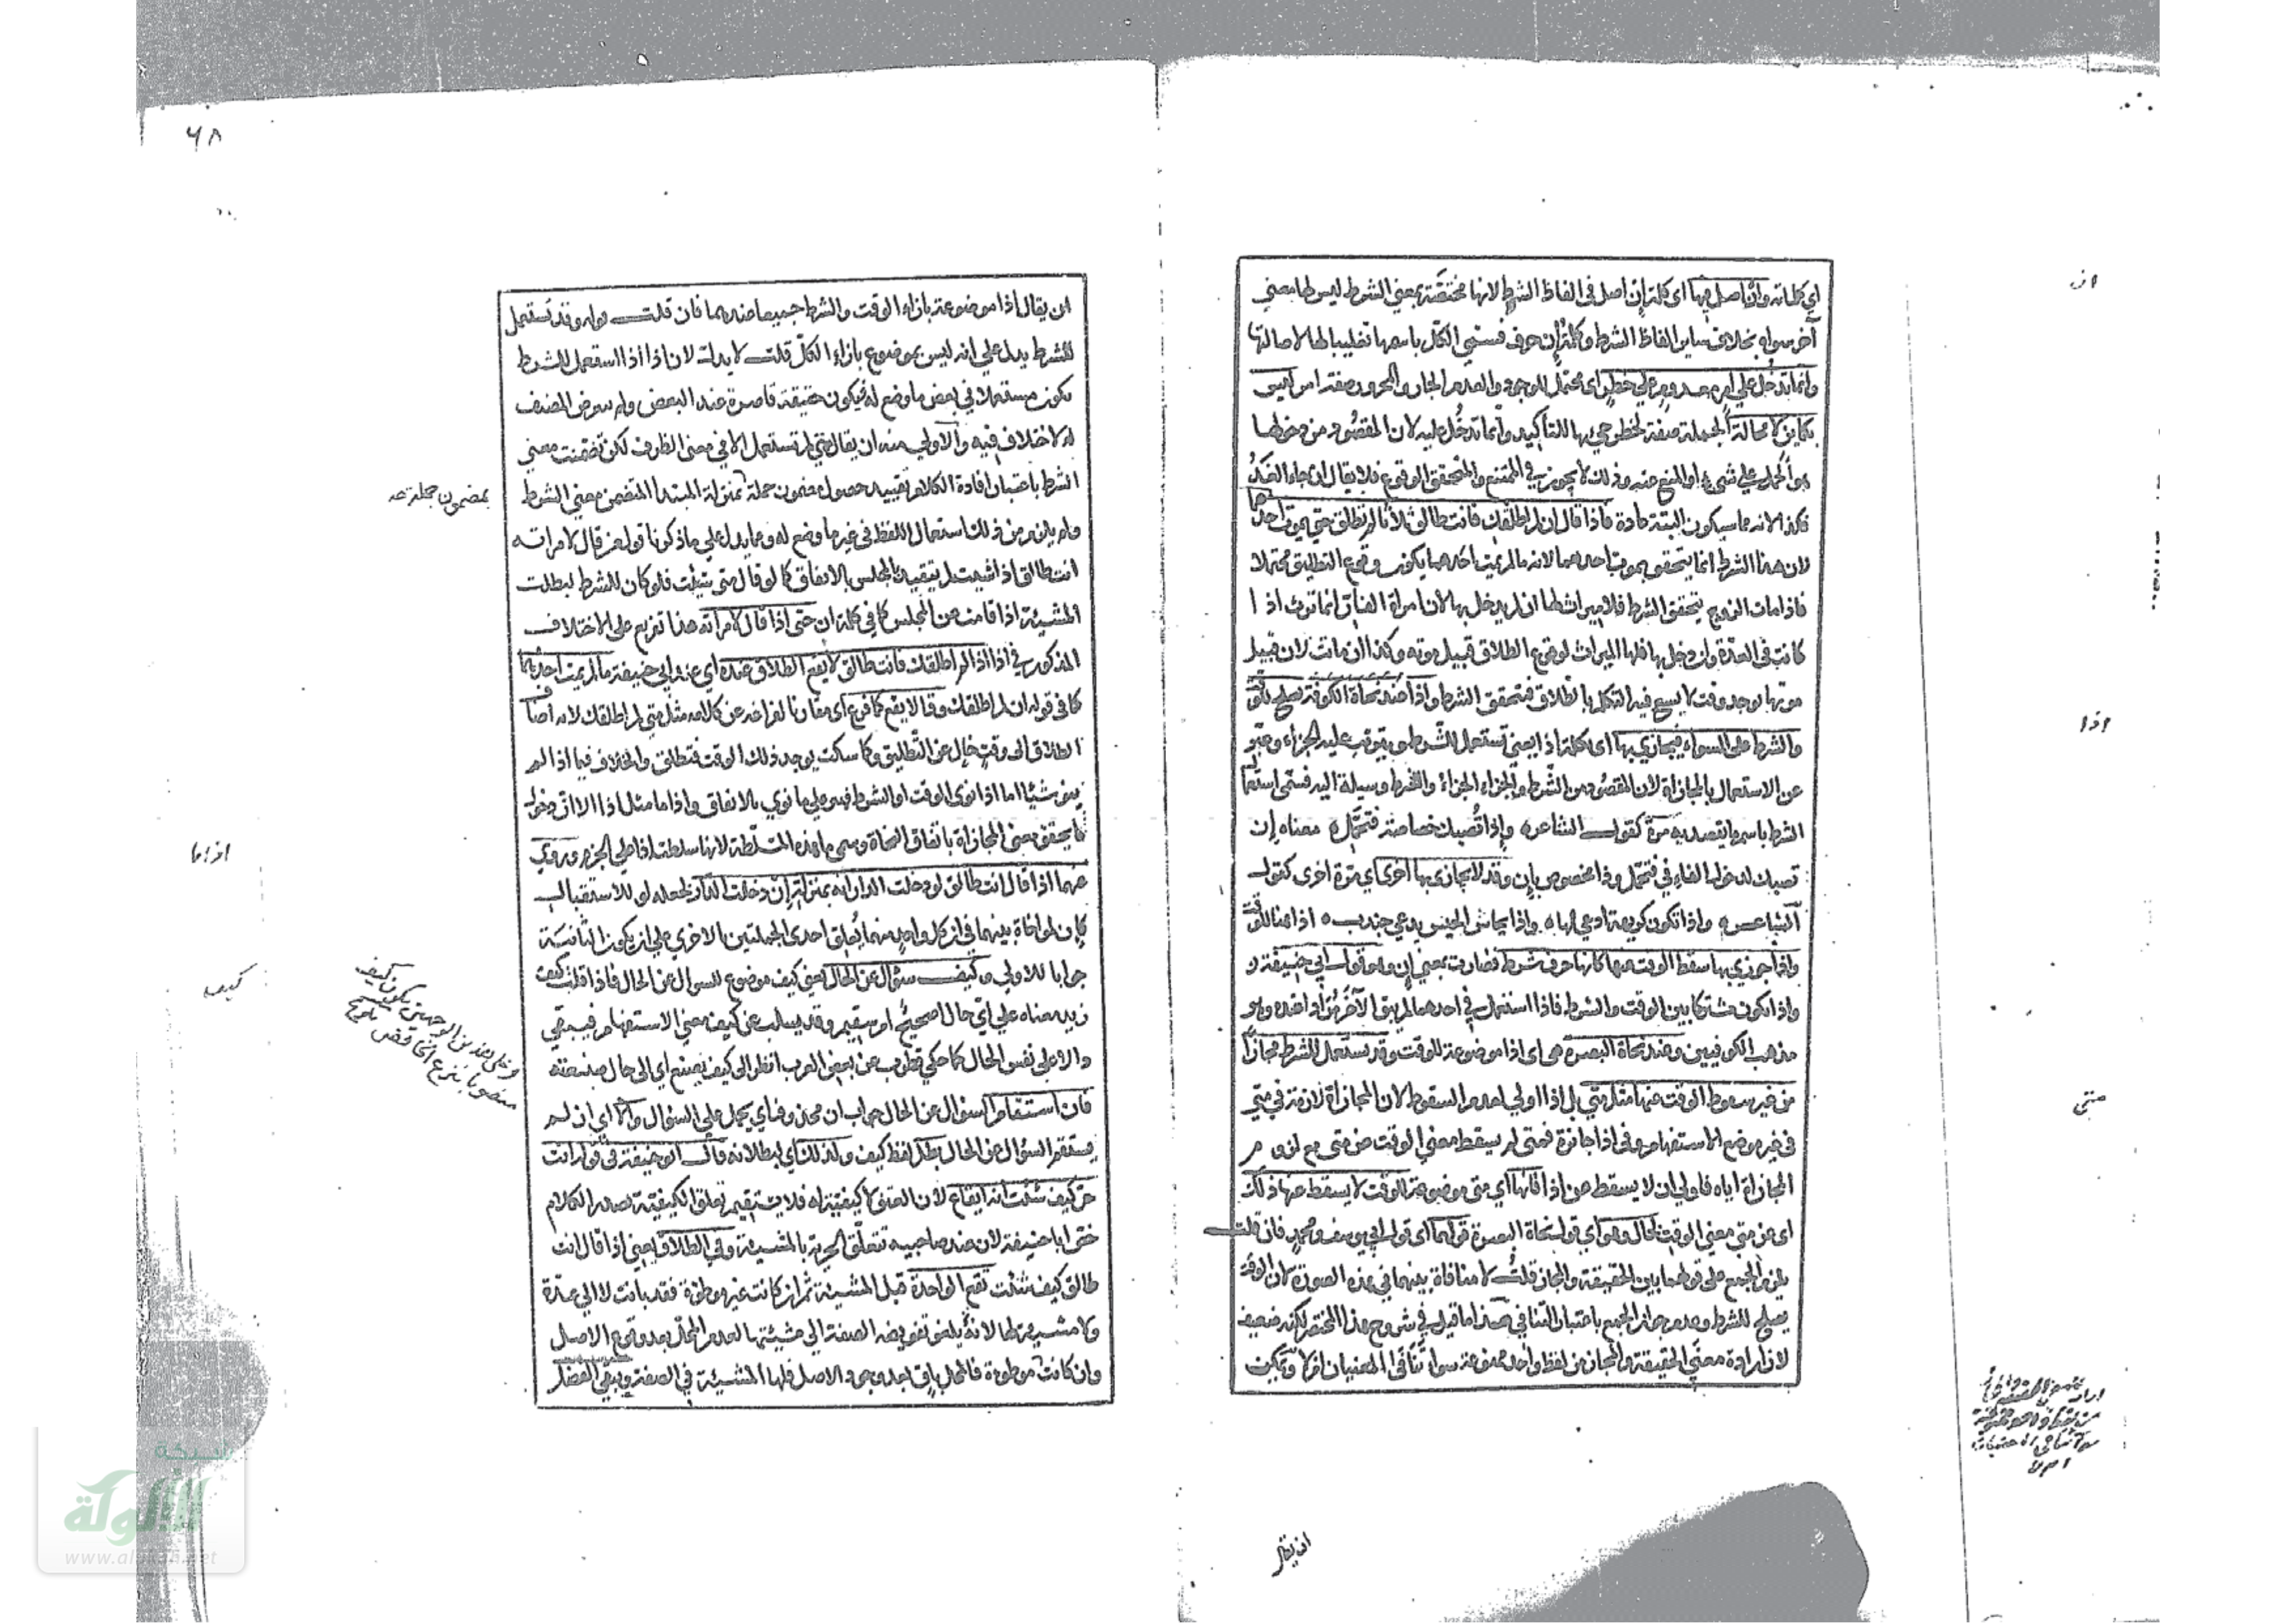 اي كلماته وانْ اصل فيها اي كلمة إن اصل في الفاظ الشرط لانها مختصّة بمعني الشرط ليس لها معني
آخر سواه بخلاف ساير الفاظ الشرط وكلمة إن حرف فسمّي الكلّ باسمها تغليبا لها لاصالتها
وانما تدخل علي امر معدوم علي خطر اي محتمل للوجود والعدم الجار والمجرور صفة امر ليس
بكاين لا محالة الجملة صفة لخطر جيء بها للتأكيد وانما تدخل عليه لان المقصود من دخولها
هو الحمل علي شيء او المنع منه وذلك لا يجوز في الممتنع والمتحقق الوقوع فلا يقال ان جاء الغد
فكذا لانه مما سيكون البتة عادة فاذا قال ان لم اطلقك فانت طالق ثلاثا لم تطلق حتي يموت احدهما
لان هذا الشرط انما يتحقق بموت احدهما لانه ما لم يمت احدهما يكون وقوع التطليق محتملا
فاذا مات الزوج يتحقق الشرط فلا ميراث لها ان لم يدخل بها لان امراة الفار انما ترث اذا
كانت في العدة وان دخل بها فلها الميراث لوقوع الطلاق قبيل موته وكذا ان ماتت لان قبيل
موتها يوجد وقت لا يسع فيه التكلم بالطلاق فتحقق الشرط واذا عند نحاة الكوفة يصلح للوقت
والشرط علي السواء فيجازي بها اي بكلمة اذا يعني تستعمل للشرط ويترتب عليه الجزاء وعبّر
عن الاستعمال بالمجازاة لان المقصود من الشرط والجزاء الجزاء والشرط وسيلة اليه فسمّي استعمال
الشرط باسم ما يقصد به مرة كقول الشاعر ه واذا تُصبك خصاصة فتجمّل ه معناه إن
تصبك لدخول الفاء في فتجمّل وذا مخصوص بإن وقد لا يجازي بها اخري اي مرّة اخري كقول
الشاعر ه واذا تكون كريهة ادعي لها ه واذا يحاس الحيس يدعي جندب ه اذا هنا للوقت
واذا جوزي بها سقط الوقت عنها كانها حرف شرط فصارت بمعني إن وهو قول ابي حنيفة و
اذا تكون مشتركا بين الوقت والشرط فاذا استعمل في احدهما لم يبق الآخر مُرادا عنده وهو
مذهب الكوفيين وعند نحاة البصرة هي اي اذا موضوعة للوقت وقد تستعمل للشرط مجازا
من غير سقوط الوقت عنها مثل متي بل اذا اولي لعدم السقوط لان المجازاة لازمة في متي
في غير موضع الاستفهام وفي اذا جائزة فمتي لم يسقط معني الوقت عن متي مع لزوم
المجازاة اياه فاولي ان لا يسقط عن اذا فانها اي متي موضوعة للوقت لا يسقط عنها ذلك
اي عن متي معني الوقت بحال وهو اي قول نحاة البصرة قولهما اي قول ابي يوسف ومحمد فان قلت
يلزم الجمع علي قولهما بين الحقيقة والمجاز قلت لا منافاة بينهما في هذه الصورة لان الوقت
يصلح للشرط وعدم جواز الجمع باعتبار التنافي هذا ما قيل في شروح هذا المختصر لكنه ضعيف
لان ارادة معني الحقيقة والمجاز من لفظ واحد ممنوعة سواء تنافي المعنيان او لا ويمكن
ان يقال
ان
اذا
متي
٦٨
ان يقال اذا موضوعة بازاء الوقت والشرط جميعا عندهما فان قلت قوله وقد تستعمل
للشرط يدل علي انه ليس بموضوع بازاء الكلّ قلت لا يدل لان اذا اذا استعمل للشرط
يكون مستعملا في بعض ما وضع له فيكون حقيقة قاصرة عند البعض ولم يتعرض المصنف
له لاختلاف فيه والاولي منه ان يقال متي لم تستعمل الا في معني الظرف لكن تضمنت معني
الشرط باعتبار افادة الكلام تقييد حصول مضمون جملة بمنزلة المبتدا المتضمن معني الشرط
ولم يلزم من ذلك استعمال اللفظ في غير ما وضع له ومما يدل علي ما ذكرنا قوله من قال لامراته
انت طالق اذا شئت لم يتقيد بالمجلس بالاتفاق كما لو قال متي شئت فلو كان للشرط لبطلت
المشيئة اذا قامت عن المجلس كما في كلمة ان حتي اذا قال لامراته هذا تفريع علي الاختلاف
المذكور في اذا اذا لم اطلقك فانت طالق لا يقع الطلاق عنده اي عند ابي حنيفة ما لم يمت احدهما
كما في قوله ان لم اطلقك وقالا يقع كما فرغ اي مقارنا لفراغه عن كلامه مثل متي لم اطلقك لانه اضاف
الطلاق الي وقت خال عن التطليق وكما سكت يوجد ذلك الوقت فتطلق والخلاف فيما اذا لم
ينو شيئا اما اذا نوي الوقت او الشرط فهو علي ما نوي بالاتفاق واذا ما مثل اذا الا ان دخول
ما يحقق معني المجازاة باتفاق النحاة وسمي ما هذه المسلّطة لانها سلطت اذا علي الجزم وروي
عنهما اذا قال انت طالق لو دخلت الدار انه بمنزلة إن دخلت الدار بجعله لو للاستقبال
كإن لمواخاة بينهما في ان كل واحد منهما يُعلق احدي الجملتين بالاخري علي ان يكون الثانية
جوابا للاولي وكيف سؤال عن الحال يعني كيف موضوع للسوال عن الحال فاذا قلت كيف
زيد معناه علي اي حال اصحيح ام سقيم وقد يسلب عن كيف معني الاستفهام فيبقي
دالا علي نفس الحال كما حكي قطرب عن بعض العرب انظر الي كيف يصنع اي الي حال صنعته
فان استقام السؤال عن الحال جواب ان محذوف اي يحمل علي السؤال والا اي ان لم
يستقم السؤال عن الحال بطل لفظ كيف ولذلك اي لبطلانه قال ابو حنيفة في قوله انت
حر كيف شئت انه ايقاع لان العتق لا كيفية له فلا يستقيم تعلق الكيفية بصدر الكلام
خصّ ابا حنيفة لان عند صاحبيه تتعلّق الحرية بالمشيئة وفي الطلاق يعني اذا قال انت
طالق كيف شئت تقع الواحدة قبل المشيئة ثم ان كانت غير موطوءة فقد بانت لا الي عدّة
ولا مشيئة لها لانه يلغو تفويض الصفة الي مشيئتها لعدم المحل بعد وقوع الاصل
وان كانت موطوءة فالمحل باق بعد وجود الاصل فلها المشيئة في الصفة ويبقي الفضل
بمضمون جملة صح
اذا ما
كيف
شبكة
الألوكة
www.alukah.net